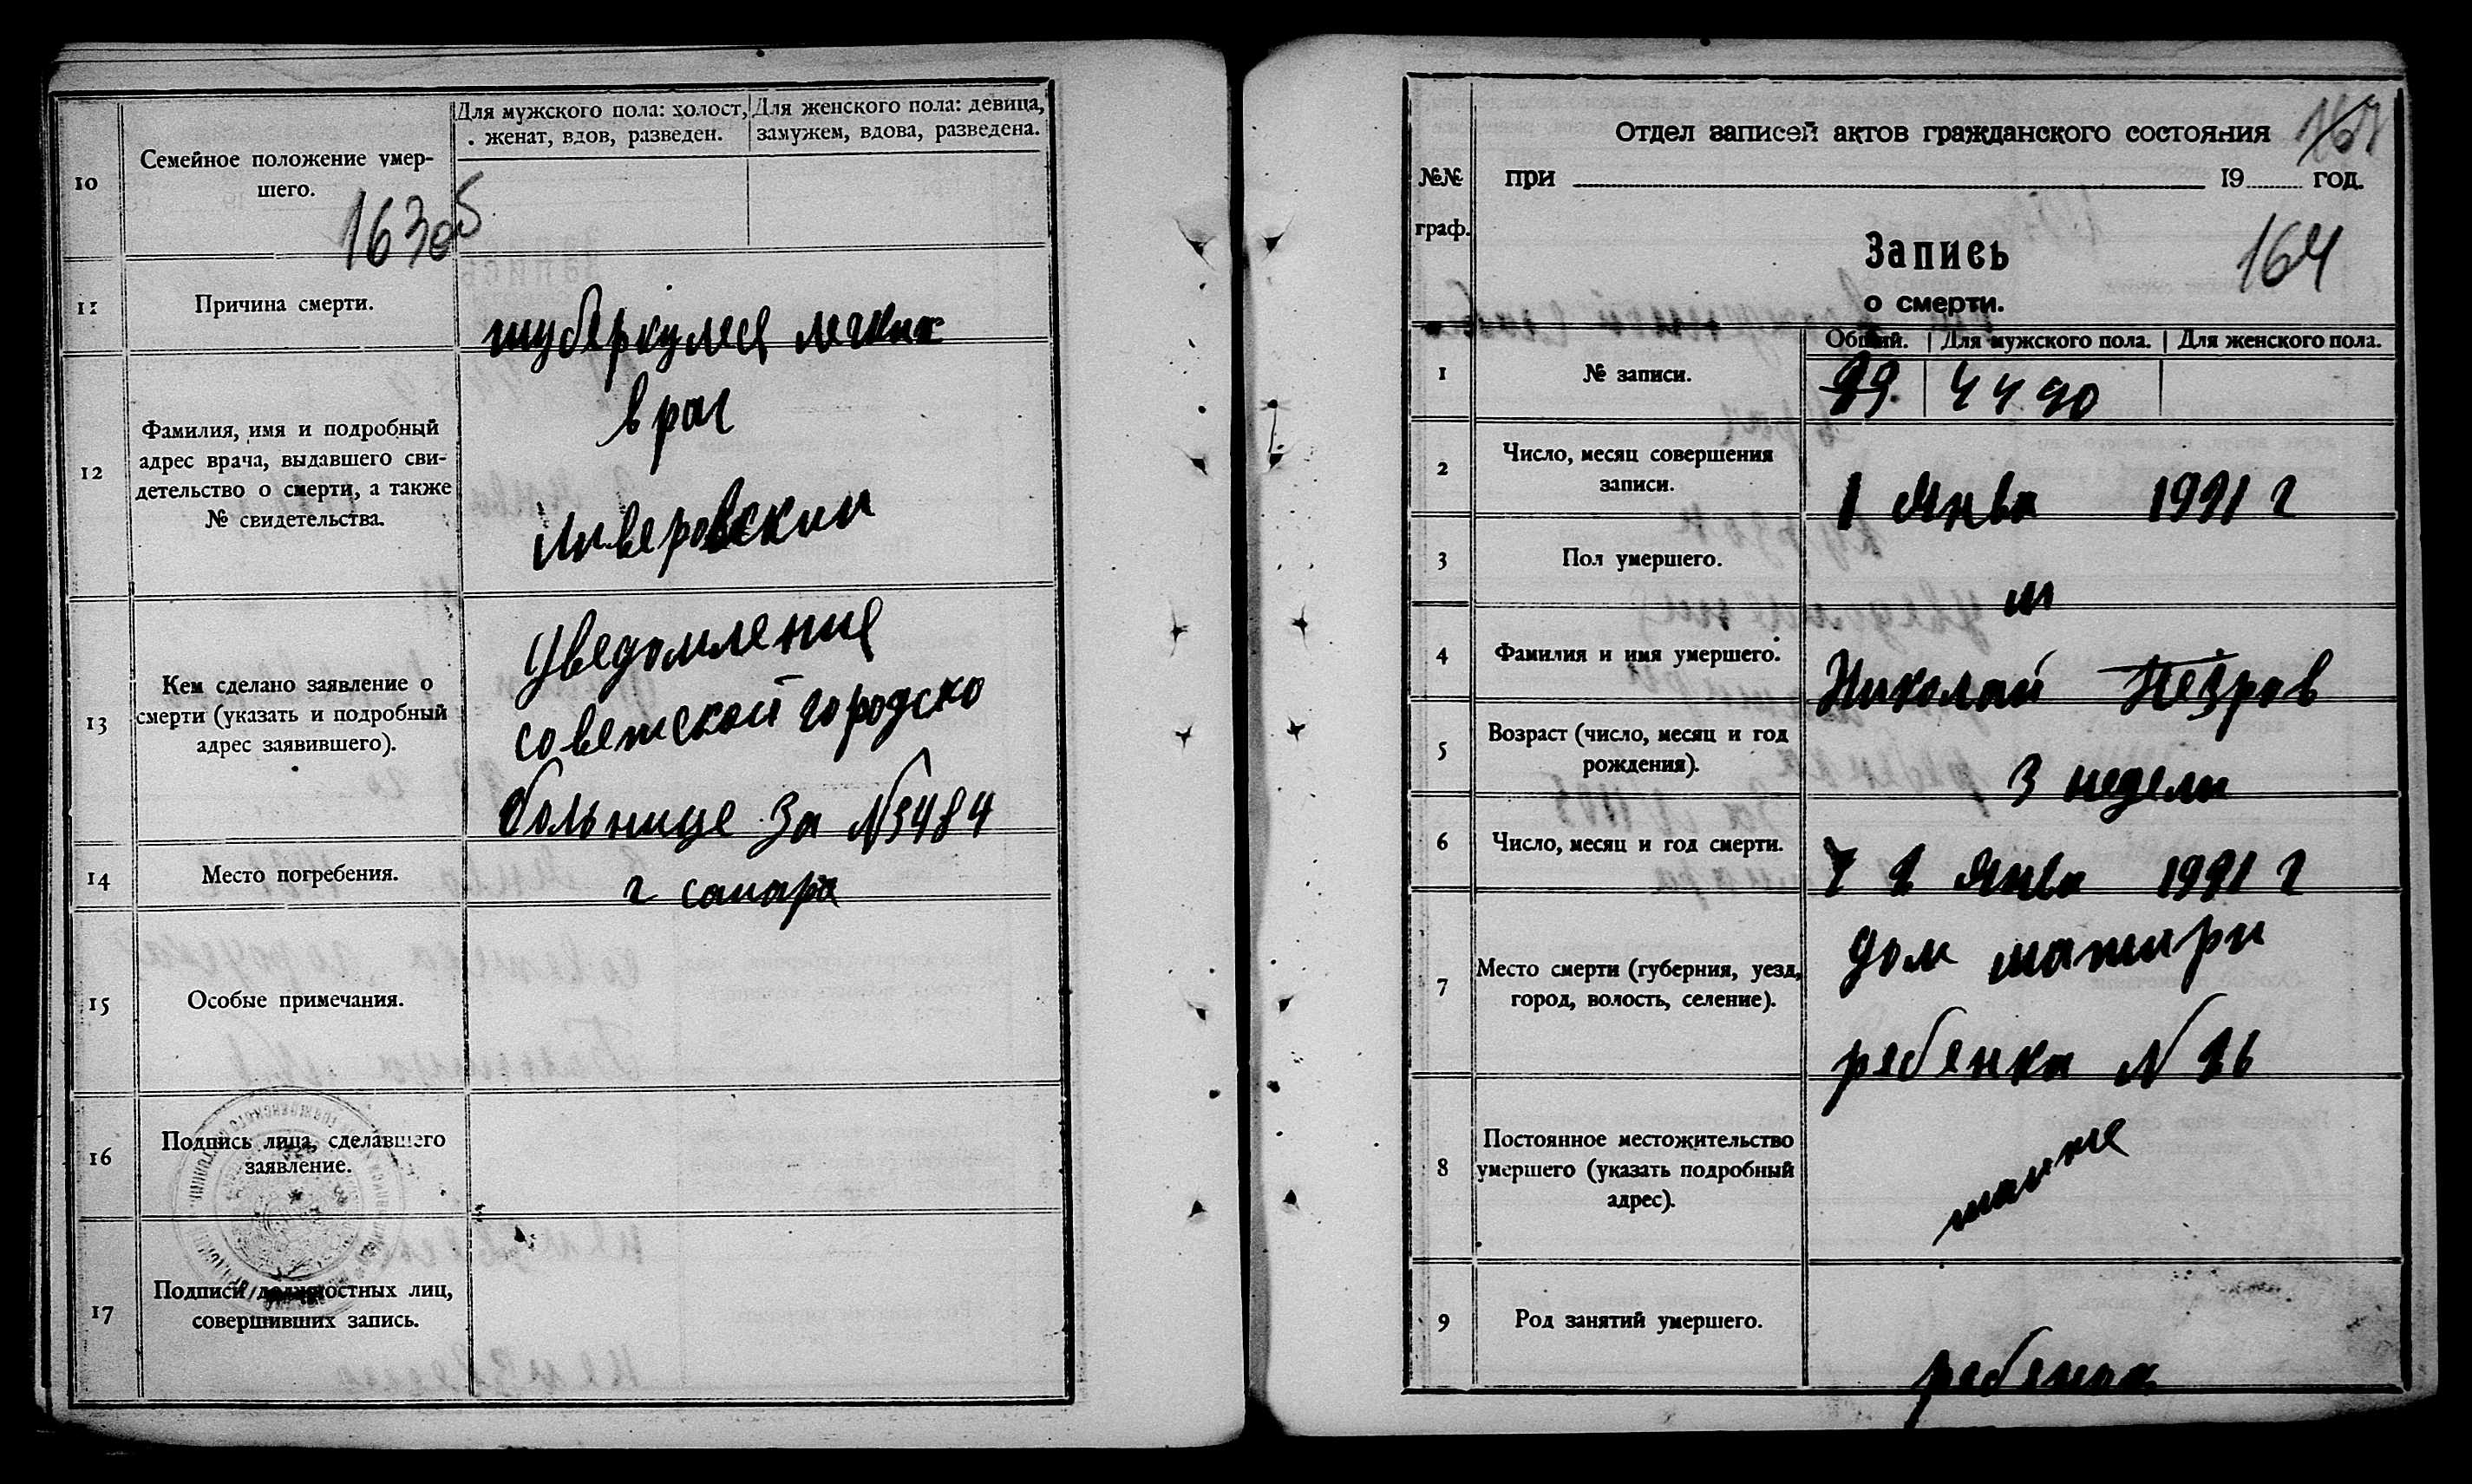 10
Семейное положение умер-
шего.
Для мужского пола: холост,
женат, вдов, разведен.
Для женского пола: девица,
замужем, вдова, разведена.
163об
11
Причина смерти.
туберкулез легких
12
Фамилия, имя и подробный
адрес врача, выдавшего сви-
детельство о смерти, а также
№ свидетельства.
врач
Ливеровский
13
Кем сделано заявление о
смерти (указать и подробный
адрес заявившего).
Уведомление
советской городско
больнице за №3484
14
Место погребения.
г самара
15
Особые примечания.
16
Подпись лица, сделавшего
заявление.
17
Подписи должностных лиц,
совершивших запись.
№№
граф.
Отдел записей актов гражданского состояния
при 19 год.
164
Запись
о смерти.
Общий.
Для мужского пола.
Для женского пола.
1
№ записи.
99.
2
Число, месяц совершения
записи.
1 Янва 1921 г
3
Пол умершего.
м
4
Фамилия и имя умершего.
Николай
5
Возраст (число, месяц и год
рождения).
3 недели
6
Число, месяц и год смерти.
Янва 1921 г
7
Место смерти (губерния, уезд,
город, волость, селение).
дом матири
ребенка №
8
Постоянное местожительство
умершего (указать подробный
адрес).
9
Род занятий умершего.
ребенок